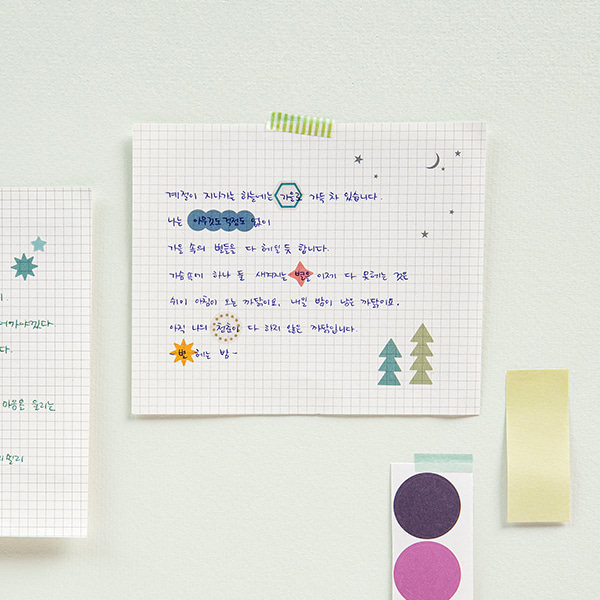 계절이 지나가는 하늘에는 가을로 가득 차 있습니다.
나는 아무것도 걱정도 없이
가을 속의 별들을 다 헤일듯 합니다.
가슴속에 하나 둘 새겨지는 별을 이제 다 못헤는 것은
쉬이 아침이 오는 까닭이요, 내일 밤이 남은 까닭이요.
아직 나의 청춘이 다 하지 않은 까닭입니다.
별 헤는 밤-
어가야겠다
다.
마음은 울리는